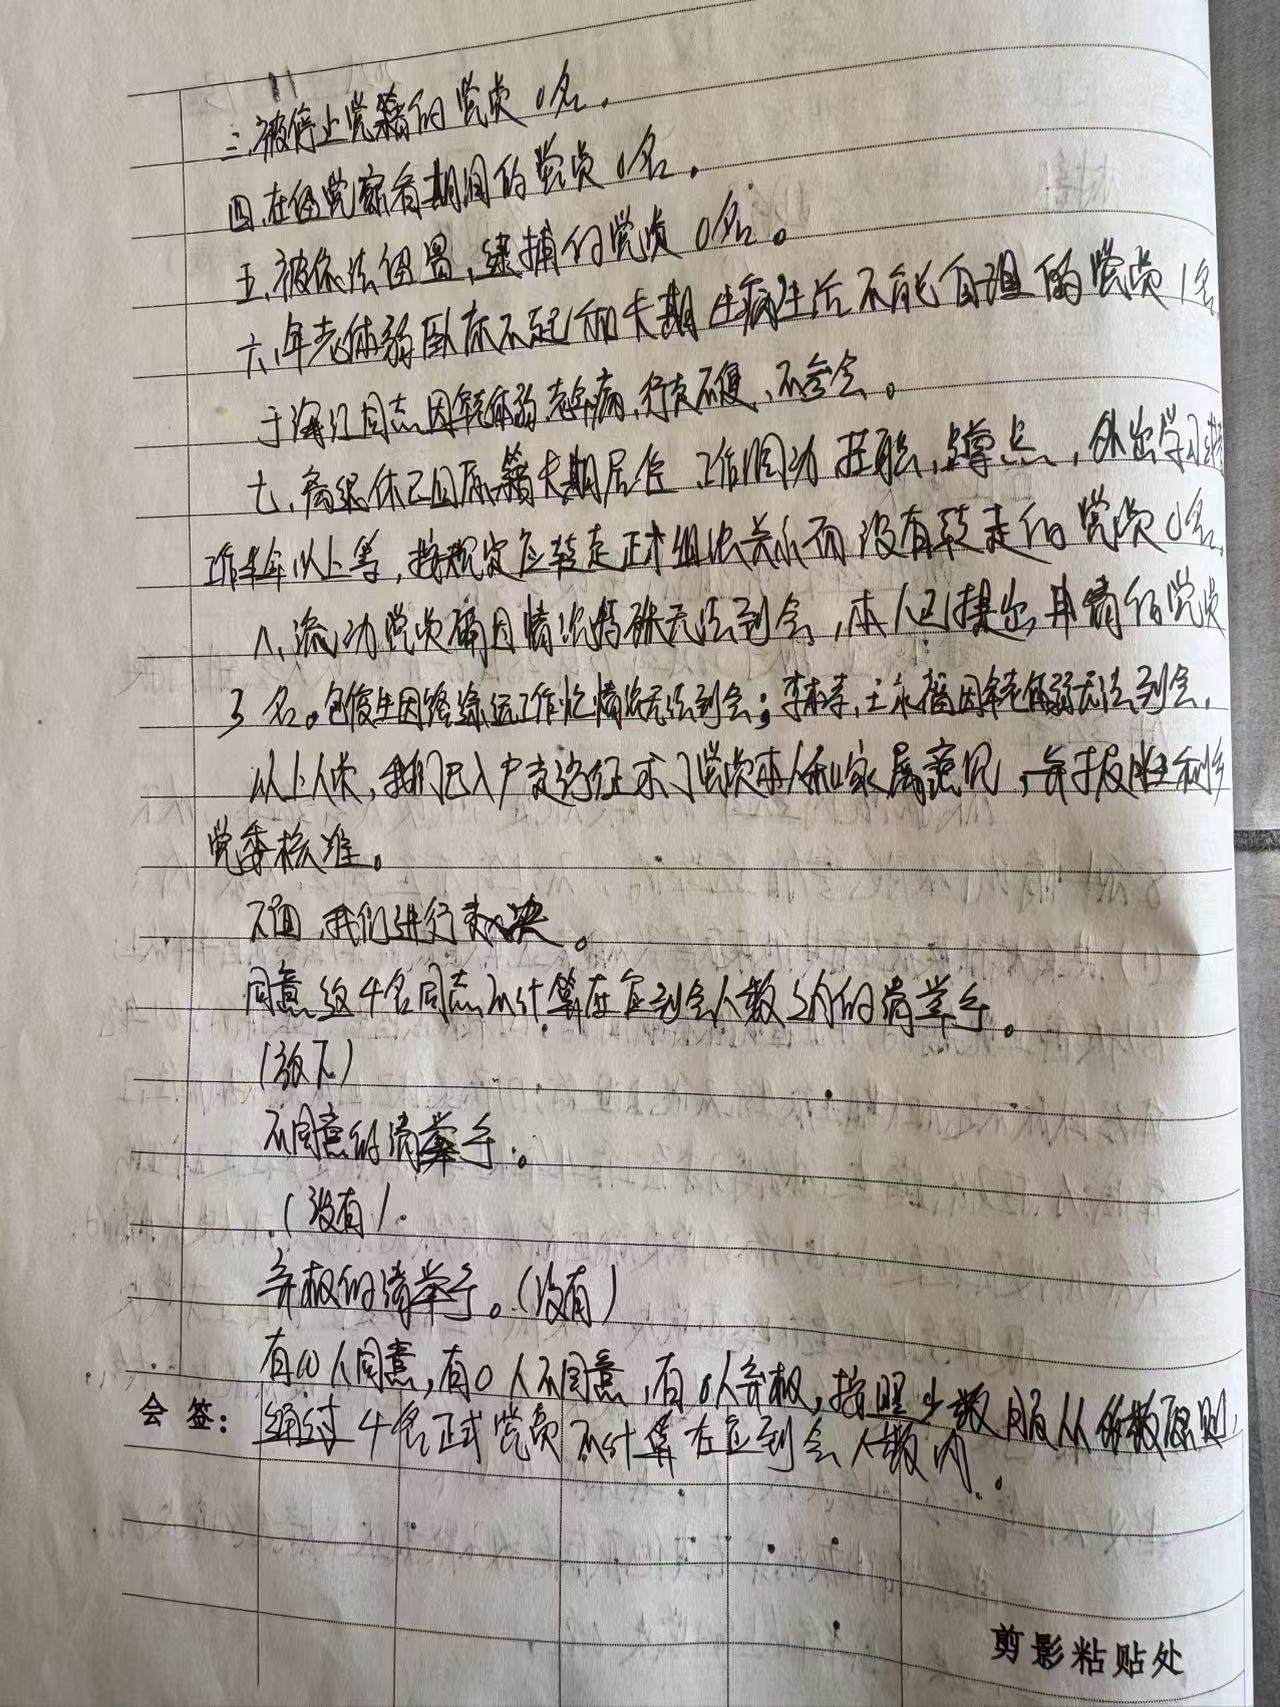 三、被停止党籍的党员0名。
四、在留党察看期间的党员0名。
五、被依法留置,逮捕的党员0名。
六、年老体弱卧床不起和长期生病生活不能自理的党员1名
于海江同志因年老体弱,老年病,行走不便,不参会。
七、离退休已回原籍长期居住 工作调动 挂职,蹲点,外出学习
工作半年以上等,按规定应转走正式组织关系而没有转走的党员0名。
八、流动党员确因情况特殊无法到会,本人已提出申请的党员
3名。包俊生因 工作忙情况无法到会;李 王永福因年老体弱无法到会,
以上人员,我们已入户走访征求了党员本人和家属意见,并报胜利乡
党委核准。
下面,我们进行表决。
同意这4名同志不计算在应到会人数之内的请举手。
(放下)
不同意的请举手。
(没有)
弃权的请举手。(没有)
有10人同意,有0人不同意,有0人弃权,按照少数服从多数原则,
会 签: 通过4名正式党员不计算在应到会人数内。
剪影粘贴处